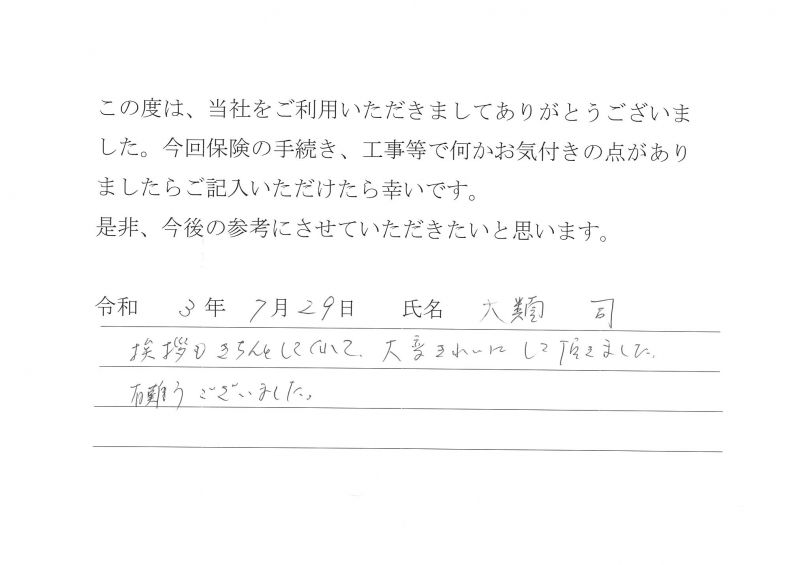 この度は、当社をご利用いただきましてありがとうございま
した。今回保険の手続き、工事等で何かお気付きの点があり
ましたらご記入いただけたら幸いです。
是非、今後の参考にさせていただきたいと思います。
令和 3年 7月29日 氏名 大類 司
挨拶もきちんとしてくれて、大変きれいにして頂きました。
有難うございました。